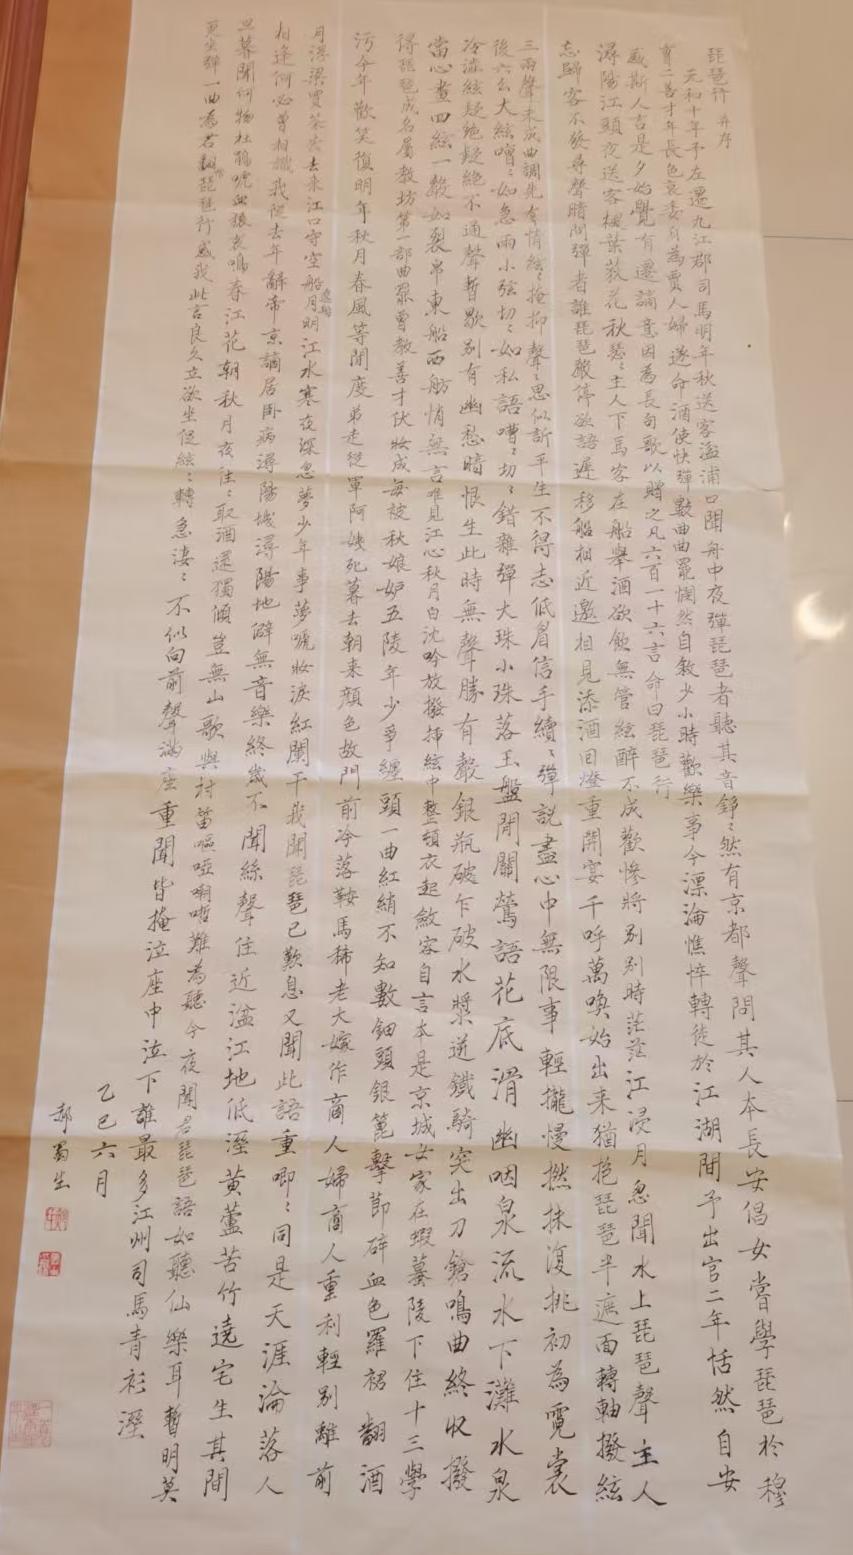 琵琶行 并序
元和十年予左遷九江郡司馬明年秋送客湓浦口聞舟中夜彈琵琶者聽其音錚〻然有京都聲問其人本長安倡女嘗學琵琶於穆
曹二善才年長色衰委身為賈人婦遂命酒使快彈數曲曲罷憫然自敘少小時歡樂事今漂淪憔悴轉徙於江湖間予出官二年恬然自安
感斯人言是夕始覺有遷謫意因為長句歌以贈之凡六百一十六言命曰琵琶行
潯陽江頭夜送客楓葉荻花秋瑟〻主人下馬客在船舉酒欲飲無管絃醉不成歡慘將別別時茫茫江浸月忽聞水上琵琶聲主人
忘歸客不發尋聲暗問彈者誰琵琶聲停欲語遲移船相近邀相見添酒回燈重開宴千呼萬喚始出来猶抱琵琶半遮面轉軸撥絃
三兩聲未成曲調先有情絃〻掩抑聲〻思似訴平生不得志低眉信手續〻彈說盡心中無限事輕攏慢撚抹復挑初為霓裳
後六幺大絃嘈〻如急雨小弦切〻如私語嘈〻切〻錯雜彈大珠小珠落玉盤間關鶯語花底滑幽咽泉流水下灘水泉
冷澀絃疑絕疑絕不通聲暫歇別有幽愁暗恨生此時無聲勝有聲銀瓶破乍破水漿迸鐵騎突出刀鎗鳴曲終收撥
當心畫四絃一聲如裂帛東船西舫悄無言唯見江心秋月白沈吟放撥插絃中整頓衣起斂容自言本是京城女家在蝦蟇陵下住十三學
得琵琶成名屬教坊第一部曲罷曾教善才伏妝成每被秋娘妒五陵年少爭纏頭一曲紅綃不知數鈿頭銀篦擊節碎血色羅裙翻酒
污今年歡笑復明年秋月春風等閒度弟走從軍阿姨死暮去朝来顏色故門前冷落鞍馬稀老大嫁作商人婦商人重利輕別離前
月浮梁買茶去去来江口守空船遶船月明江水寒夜深忽夢少年事夢啼妝淚紅闌干我聞琵琶已歎息又聞此語重唧〻同是天涯淪落人
相逢何必曾相識我從去年辭帝京謫居臥病潯陽城潯陽地僻無音樂終歲不聞絲聲住近湓江地低溼黃蘆苦竹遶宅生其間
旦暮聞何物杜鵑啼血猿哀鳴春江花朝秋月夜往〻取酒還獨傾豈無山歌與村笛嘔啞啁哳難為聽今夜聞君琵琶語如聽仙樂耳暫明莫
更坐彈一曲為君翻作琵琶行感我此言良久立欲坐促絃〻轉急淒〻不似向前聲滿座重聞皆掩泣座中泣下誰最多江州司馬青衫溼
乙巳六月
郝蜀生